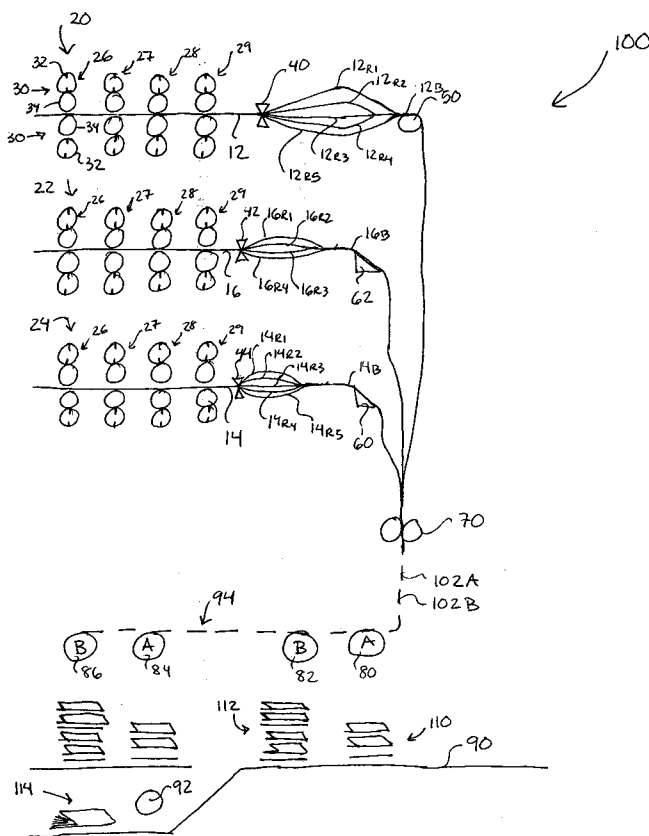 20
100
32 26 27 28 29
40
12R1
12R2
12B
50
30
34
30
34
32
12
12R3
12R4
12R5
22
26 27 28 29
42
16R1
16R2
16B
16
16R4
16R3
62
24
26 27 28 29
44
14R1
14R2
14R3
14B
14
14R4
14R5
60
70
102A
102B
94
B A B A
86 84 82 80
112
110
90
114
92